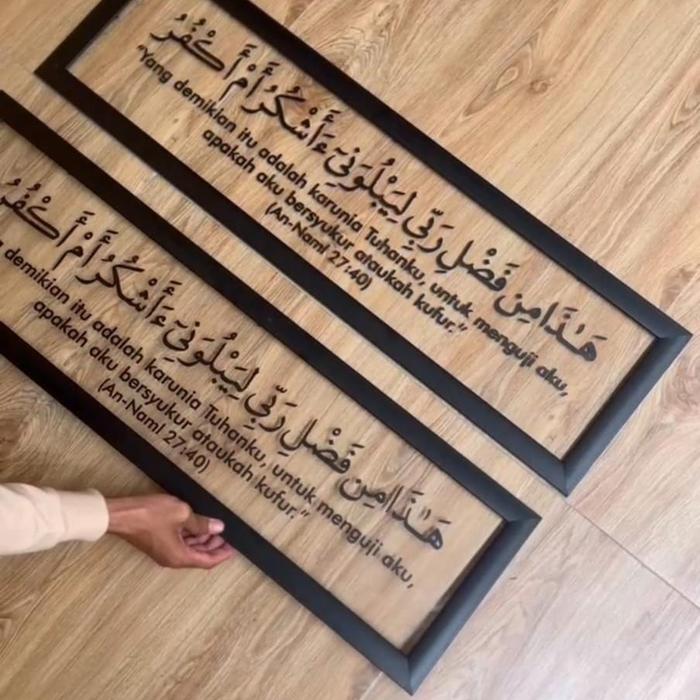 هَـٰذَا مِن فَضْلِ رَبِّي لِيَبْلُوَنِيٓ ءَأَشْكُرُ أَمْ أَكْفُرُ
"Yang demikian itu adalah karunia Tuhanku, untuk menguji aku,
apakah aku bersyukur ataukah kufur."
(An-Naml 27:40)
هَـٰذَا مِن فَضْلِ رَبِّي لِيَبْلُوَنِيٓ ءَأَشْكُرُ أَمْ أَكْفُرُ
demikian itu adalah karunia Tuhanku, untuk menguji aku,
apakah aku bersyukur ataukah kufur."
(An-Naml 27:40)